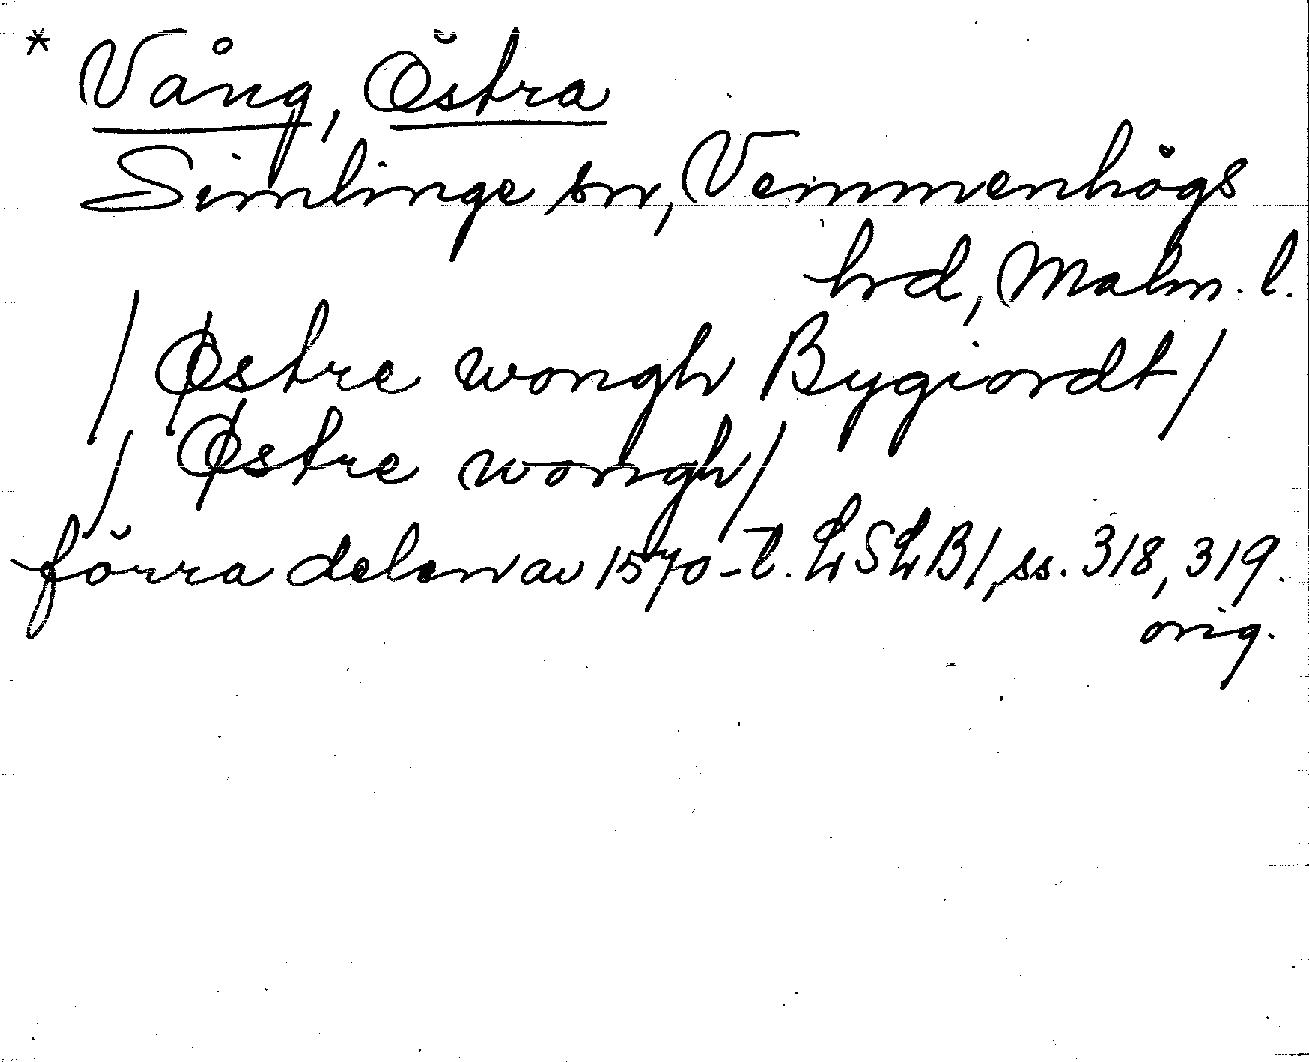 * Vång, Östra
Simlinge sn, Vemmenhögs
hrd, Malm. l.
/ Østre wongh Bygiordt /
/ Østre wongh /
förra delen av 1570-t. LSLB1, ss. 318, 319.
orig.